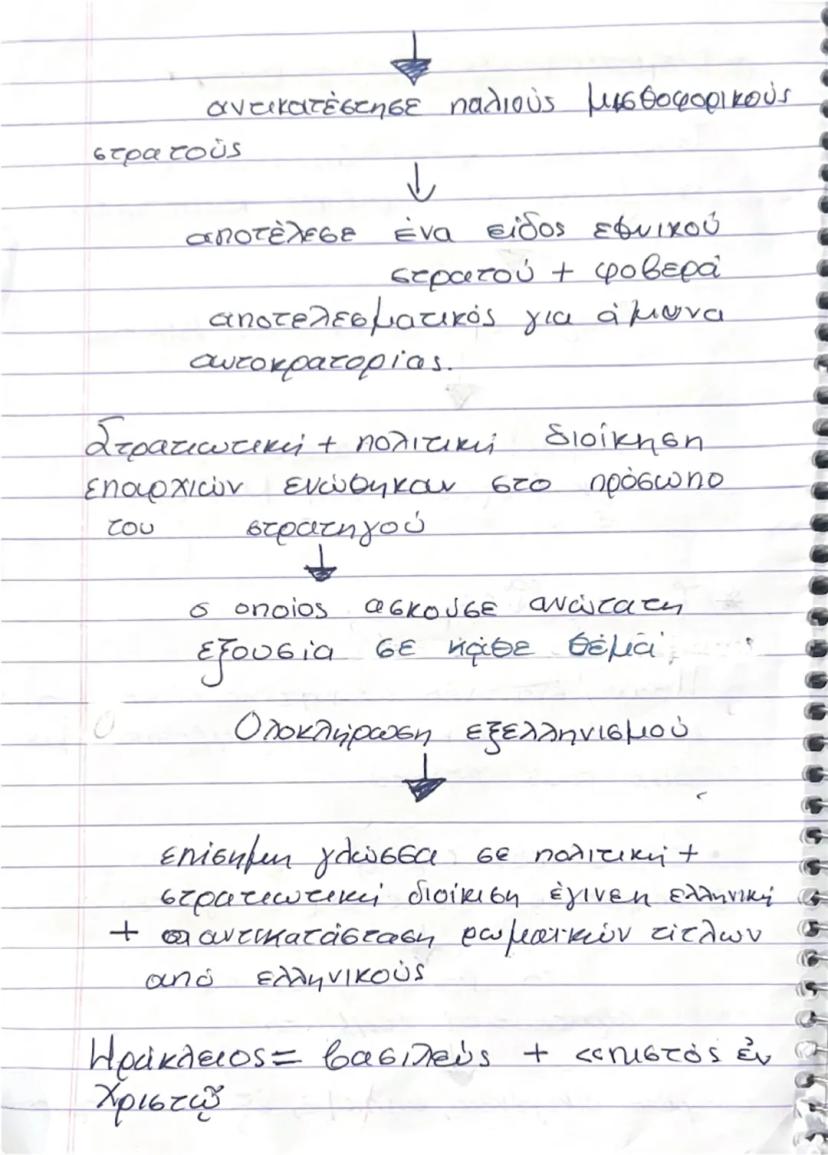 αντικατέστησε παλιούς μισθοφορικούς
στρατούς
αποτέλεσε ένα είδος εθνικού
στρατού + φοβερά
αποτελεσματικός για άμυνα
αυτοκρατορίας.
Στρατιωτική + πολιτική διοίκηση
επαρχιών ενώθηκαν στο πρόσωπο
του στρατηγού
ο οποίος ασκούσε ανώτατη
εξουσία σε κάθε θέμα
Ολοκλήρωση εξελληνισμού
επίσημη γλώσσα σε πολιτική +
στρατιωτική διοίκιση έγινεη ελληνική
+ αντικατάσταση ρωμαϊκών τίτλων
από ελληνικούς
Ηράκλειος = βασιλεύς + «πιστός ἐν
Χριστῷ